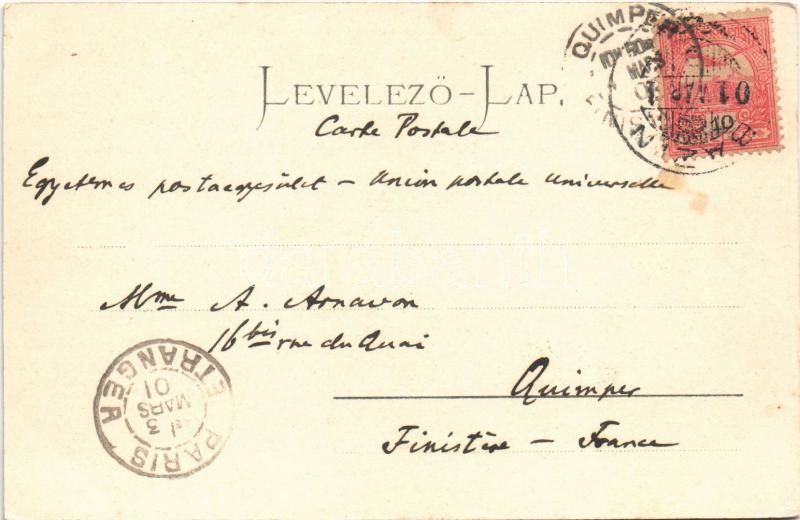 LEVELEZŐ-LAP.
Carte Postale
Egyetemes postaegyesület – Union postale universelle
Mme A. Arnavon
16 bis rue du Quai
Quimper
Finistère – France
QUIMPER
01 MAR
PARIS ETRANGER
3
MARS
01